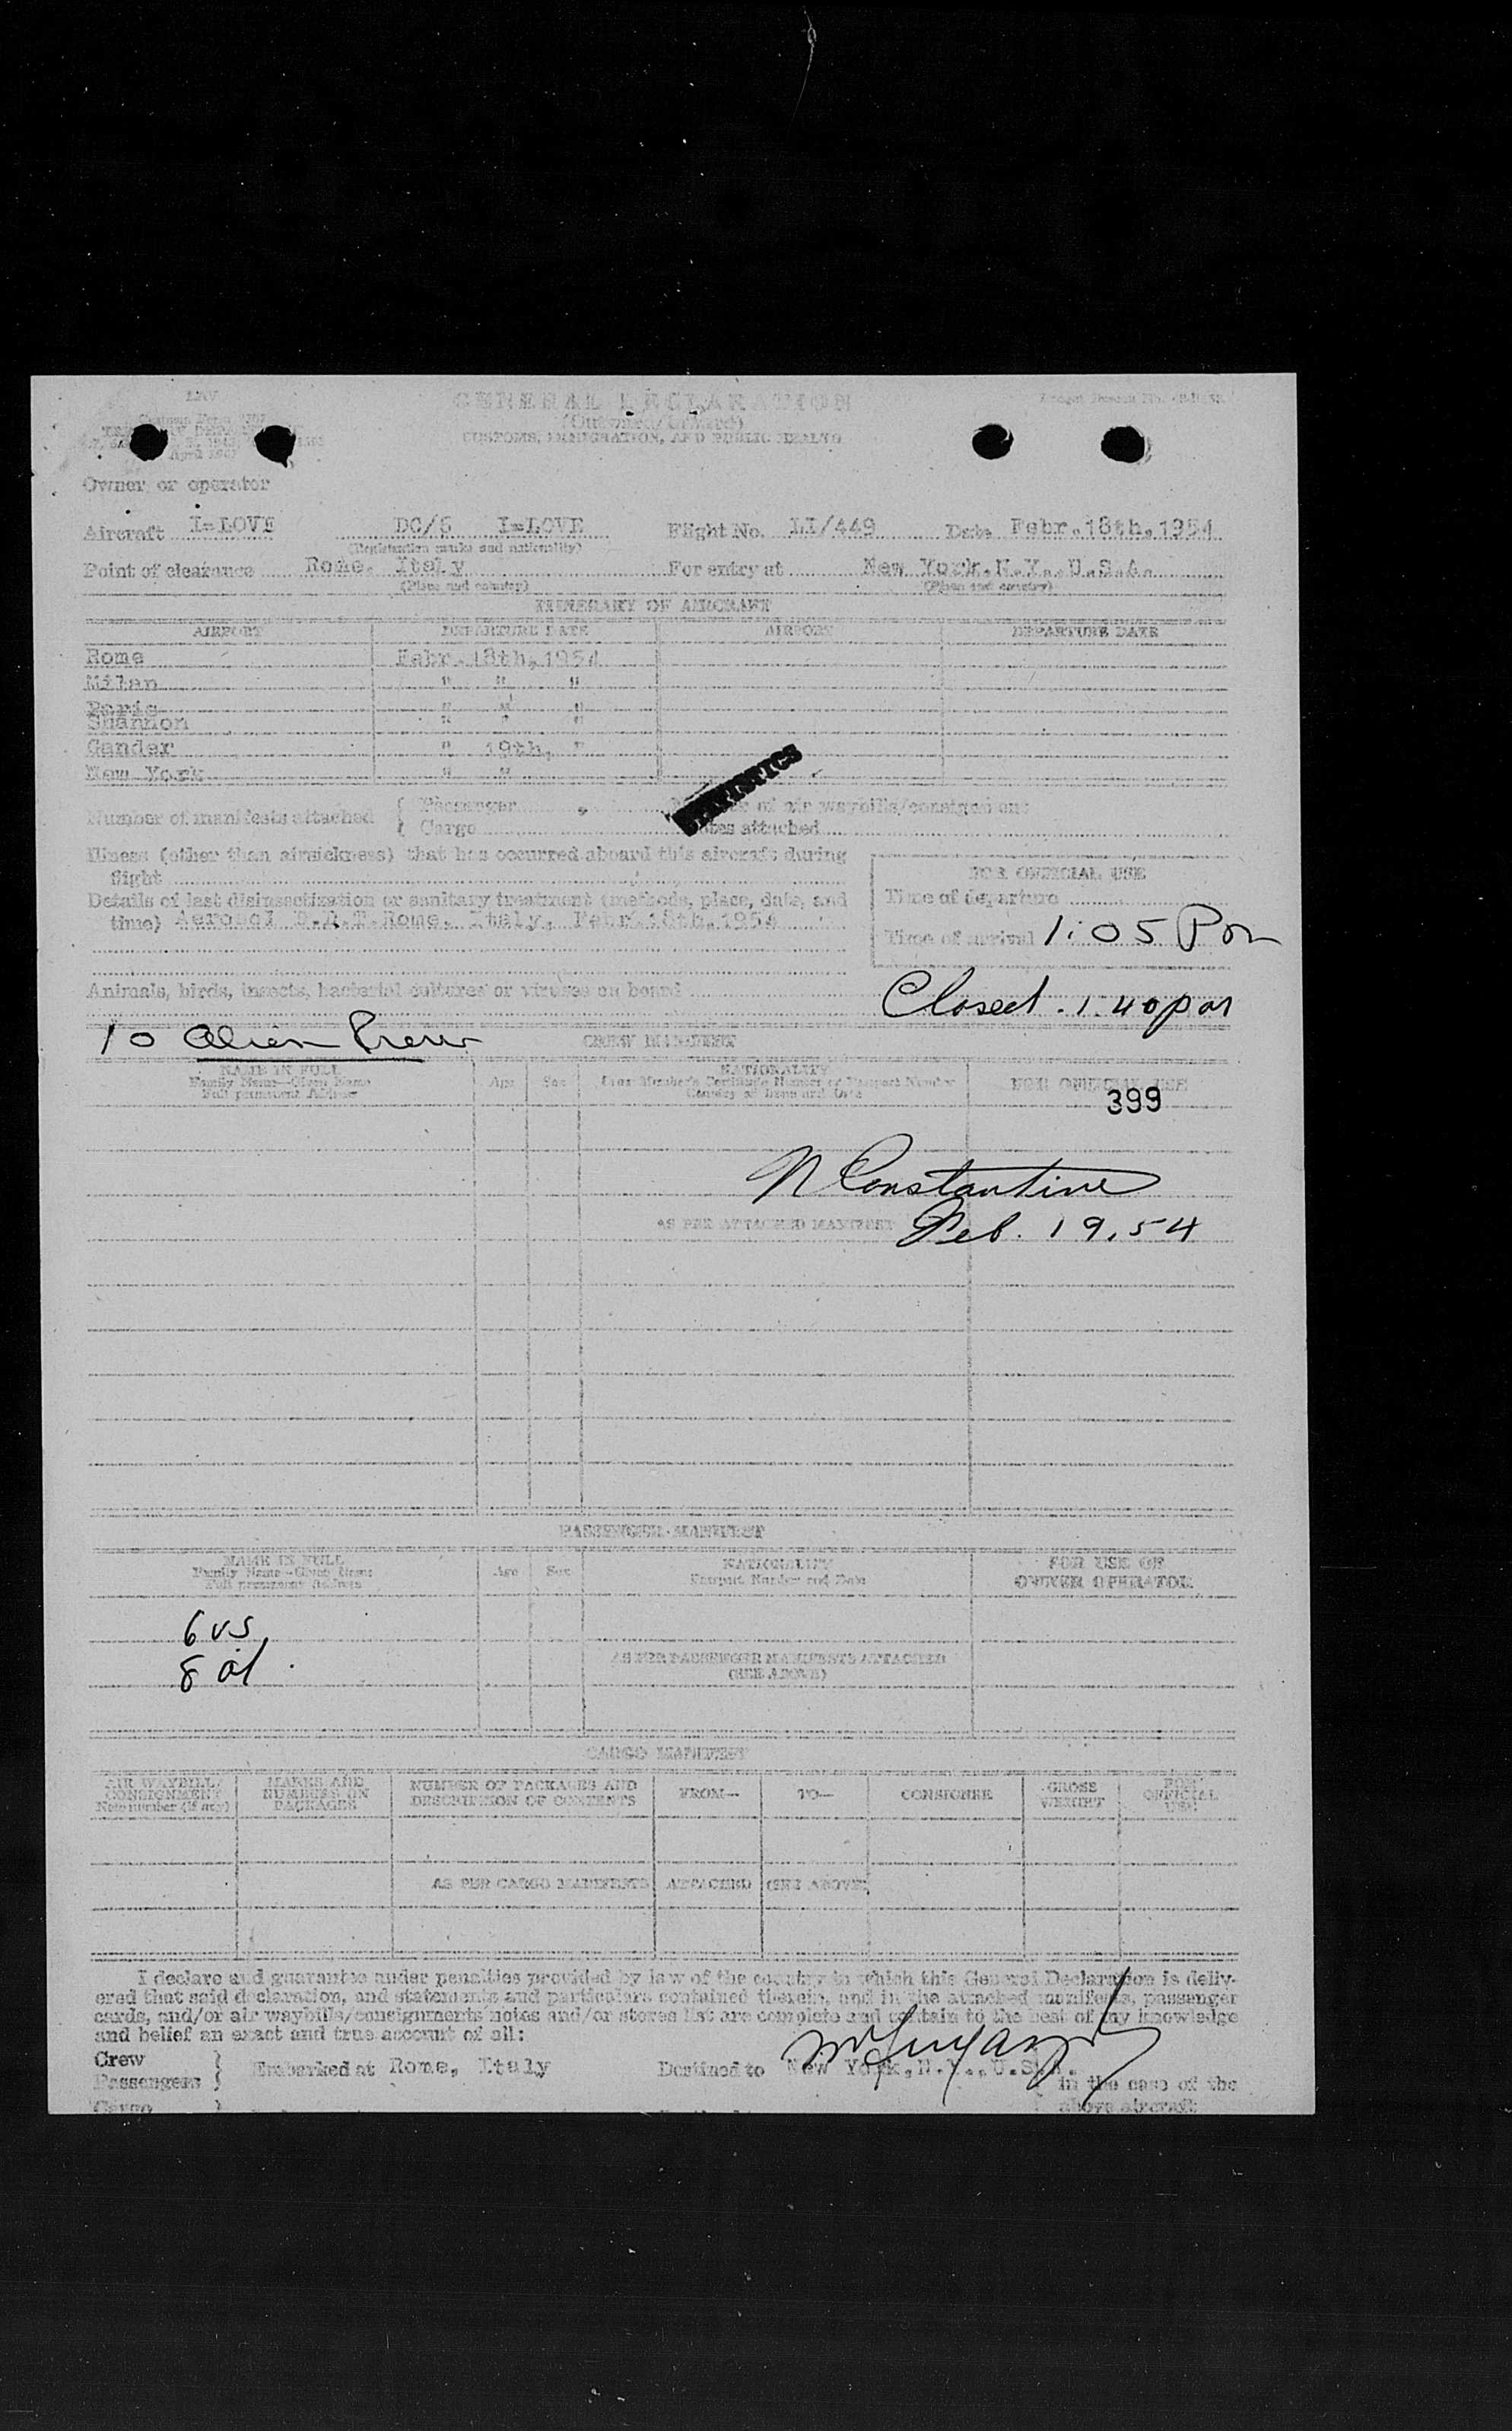 LAV
GENERAL DECLARATION
(Outward/Inward)
CUSTOMS, IMMIGRATION, AND PUBLIC HEALTH
April 1947
Owner or operator
Aircraft I-LOVE DC/6 I-LOVE Flight No. LI/449 Date Febr.18th,1954
(Registration marks and nationality)
Point of clearance Rome, Italy For entry at New York,N.Y.,U.S.A.
(Place and country) (Place and country)
ITINERARY OF AIRCRAFT
AIRPORT DEPARTURE DATE AIRPORT DEPARTURE DATE
Rome Febr.18th,1954
Milan " " "
Paris " " "
Shannon " " "
Gander " 19th, "
New York " "
STATISTICS
Number of manifests attached { Passenger of air waybills/consignment
{ Cargo notes attached
Illness (other than airsickness) that has occurred aboard this aircraft during
flight
FOR OFFICIAL USE
Details of last disinsectization or sanitary treatment (methods, place, date, and
time) Aerosol D.D.T. Rome, Italy, Febr.18th,1954
Time of departure
Time of arrival 1:05 Pm
Animals, birds, insects, bacterial cultures or viruses on board
Closed . 1.40 pm
10 Alien Crew
CREW MANIFEST
NAME IN FULL Age Sex NATIONALITY FOR OFFICIAL USE
Family Name—Given Name Crew Member's Certificate Number or Passport Number
Full permanent Address Country of Issue and Date
399
N Constantine
AS PER ATTACHED MANIFEST Feb. 19.54
PASSENGER MANIFEST
NAME IN FULL Age Sex NATIONALITY FOR USE OF
Family Name—Given Name Passport Number and Date OWNER OPERATOR
Full permanent Address
6 US
8 al.
AS PER PASSENGER MANIFESTS ATTACHED
(SEE ABOVE)
CARGO MANIFEST
AIR WAYBILL/ MARKS AND NUMBER OF PACKAGES AND FROM— TO— CONSIGNEE GROSS FOR
CONSIGNMENT NUMBERS ON DESCRIPTION OF CONTENTS WEIGHT OFFICIAL
Note number (if any) PACKAGES USE
AS PER CARGO MANIFESTS ATTACHED (SEE ABOVE)
I declare and guarantee under penalties provided by law of the country in which this General Declaration is deliv-
ered that said declaration, and statements and particulars contained therein, and in the attached manifests, passenger
cards, and/or air waybills/consignments notes and/or stores list are complete and contain to the best of my knowledge
and belief an exact and true account of all:
Crew } Embarked at Rome, Italy Destined to New York,N.Y.,U.S.A.
Passengers } in the case of the
Cargo } above aircraft